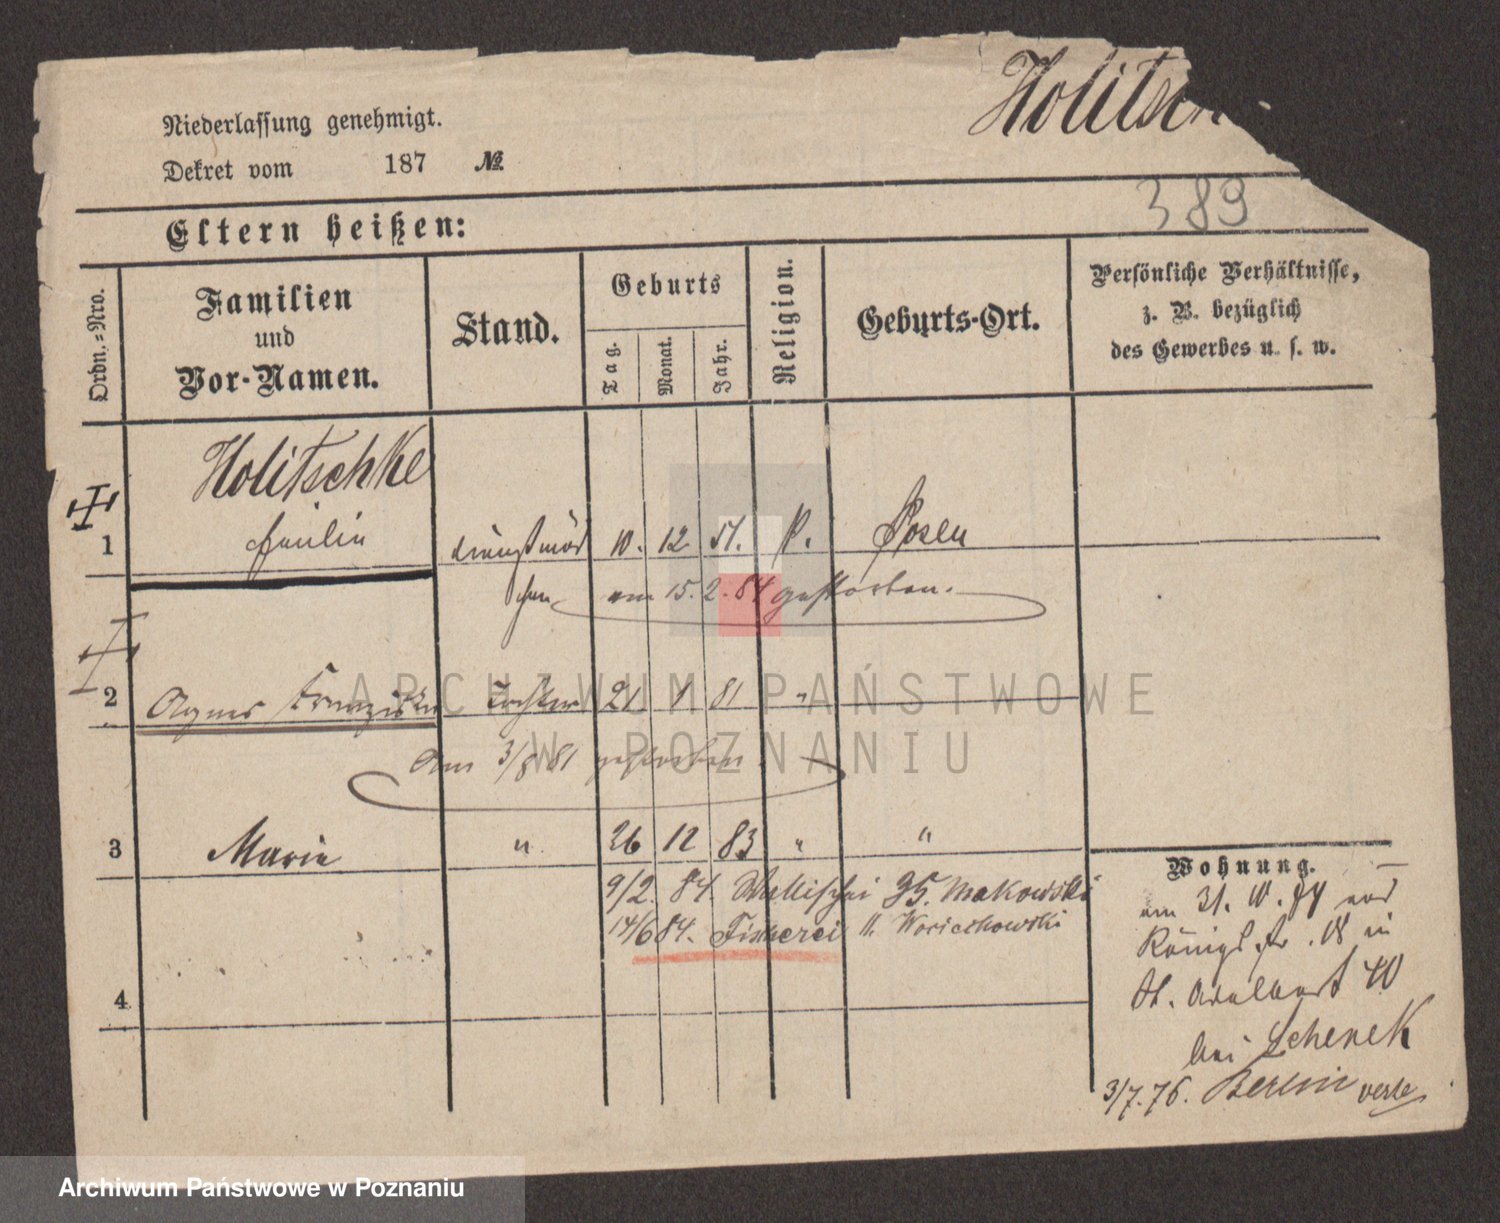 Holitsch
Niederlassung genehmigt.
Dekret vom 187 №
389
Eltern heißen:
Ordn.-Nro.
Familien
und
Vor-Namen.
Stand.
Geburts
Tag.
Monat.
Jahr.
Religion.
Geburts-Ort.
Persönliche Verhältnisse,
z. B. bezüglich
des Gewerbes u. s. w.
Holitschke
1 dienstmäd 10. 12 51. k. Posen
chen am 15. 2. 84 gestorben.
2 Agnes Franziska Tochter 21 1 81 "
Am 3/8 81 gestorben
3 Marie " 26 12 83 " "
9/2. 84. Wallischei 35. Makowski
14/6 84. Fischerei 11. Woriechowski
4
Wohnung.
am 31. 10. 74 von
Königs str. 18 in
St. Adalbert 40
bei Schenck
3/7. 76. Berlin
ARCHIWUM PAŃSTWOWE
W POZNANIU
Archiwum Państwowe w Poznaniu